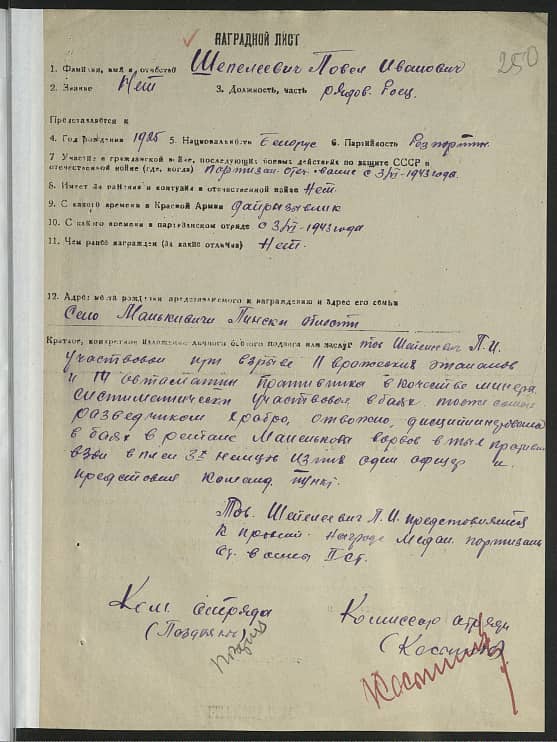 НАГРАДНОЙ ЛИСТ
250
1. Фамилия, имя и отчество Шепелеевич Повел Иванович
2. Звание Нет 3. Должность, часть рядов. Росц.
Представляется к
4. Год рождения 1925 5. Национальность Белорус 6. Партийность
7 Участие в гражданской войне, последующих боевых действиях по защите СССР и
отечественной войне (где, когда) Портизан. с 3/VI-1943 года.
8. Имеет ли ранения и контузии в отечественной войне Нет.
9. С какого времени в Красной Армии
10. С какого времени в партизанском отряде с 3/VI-1943 года
11. Чем ранее награжден (за какие отличия) Нет.
12. Адрес места рождения представляемого к награждению и адрес его семьи
Село Манькивичи Пински области
Краткое, конкретное изложение личного боевого подвига или заслуг тов Шепелеевич П.И.
участвовол при взрыве 11 вражеских эшалонов
и автомашин противника в кочестве минера
систиматически участвовол в боях
разведчиком хробро, отвожно,
в боях в рейд
взял в плен 3х немцев из них один офицер и
команд. пункт.
Тов. Шепелеевич П.И. представляется
к Награде Медаль портизан
От. войны II ст.
Ком. отряда
Комиссар отряда